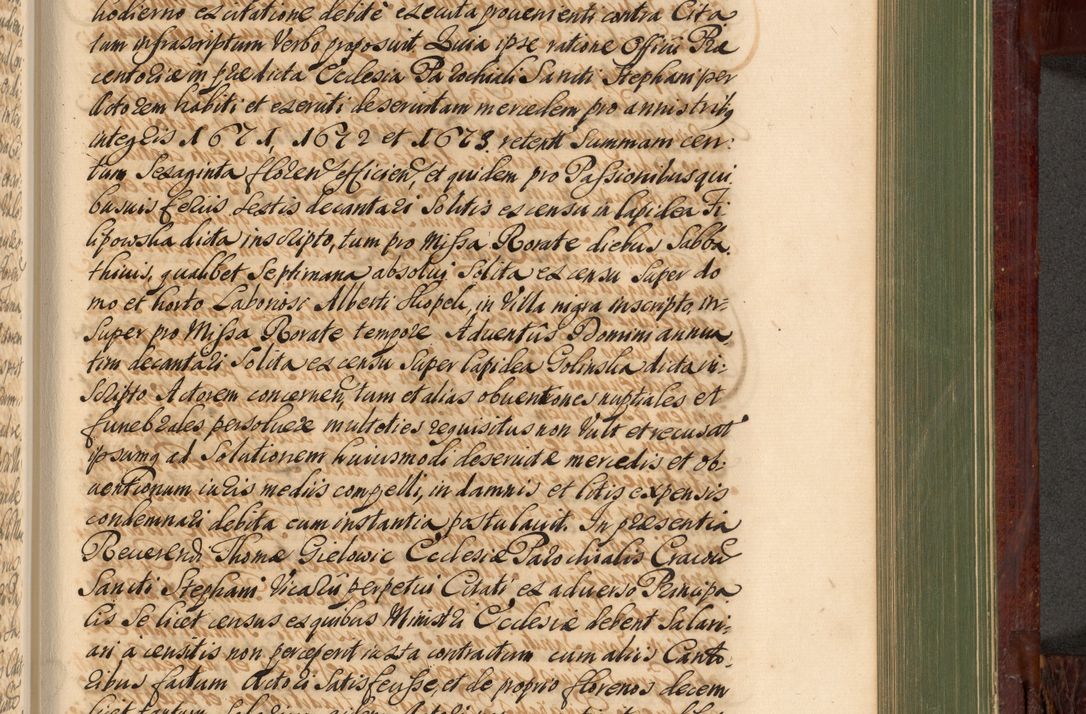 hodierno ex citatione debite executa prouenienti contra Cita
tum infrascriptum Verbo proposuit Quia ipse ratione Officii Præ
centoriæ in prædicta Ecclesia Parochiali Sancti Stephani per
Actorem habiti et exerciti deseruitam mercedem pro annis tribus
integris 1671, 1672 et 1673, retenti Summam cen:
tum Sexaginta floren efficien, et quidem pro Passionibus qui
busuis ferijs Sextis decantari Solitis ex censu in lapidea Fi
lipowska dicta inscripto, tum pro Missa Rorate diebus Sabba
thinis, qualibet Septimana absolui Solita ex censu Super do
mo et horto Laboriosi Alberti Skopek, in Villa nigra inscripto, in=
Super pro Missa Rorate tempore Aduentûs Domini annua
tim decantari Solita ex censu Super lapidea Golinska dicta in:
scripto Actorem concernen, tum et alias obuentiones nuptiales et
funebrales persoluere multoties requisitus non Vult et recusat
ipsumq ad Solutionem huiusmodi deseruitæ mercedis et ob:
uentionum iuris mediis compelli, in damnis et litis expensis
condemnari debita cum instantia postulauit. In præsentia
Reuerendi Thomæ Grelowic Ecclesiæ Parochialis Cracouien
Sancti Stephani Vicarii perpetui Citati ex aduerso Principa
lis Se licet census ex quibus Ministri Ecclesiæ debent Salari:
ari a censitis non perceperit iuxta contractum cum aliis Canto:
ribus factum Actori Satisfecisse, et de proprio florenos decem